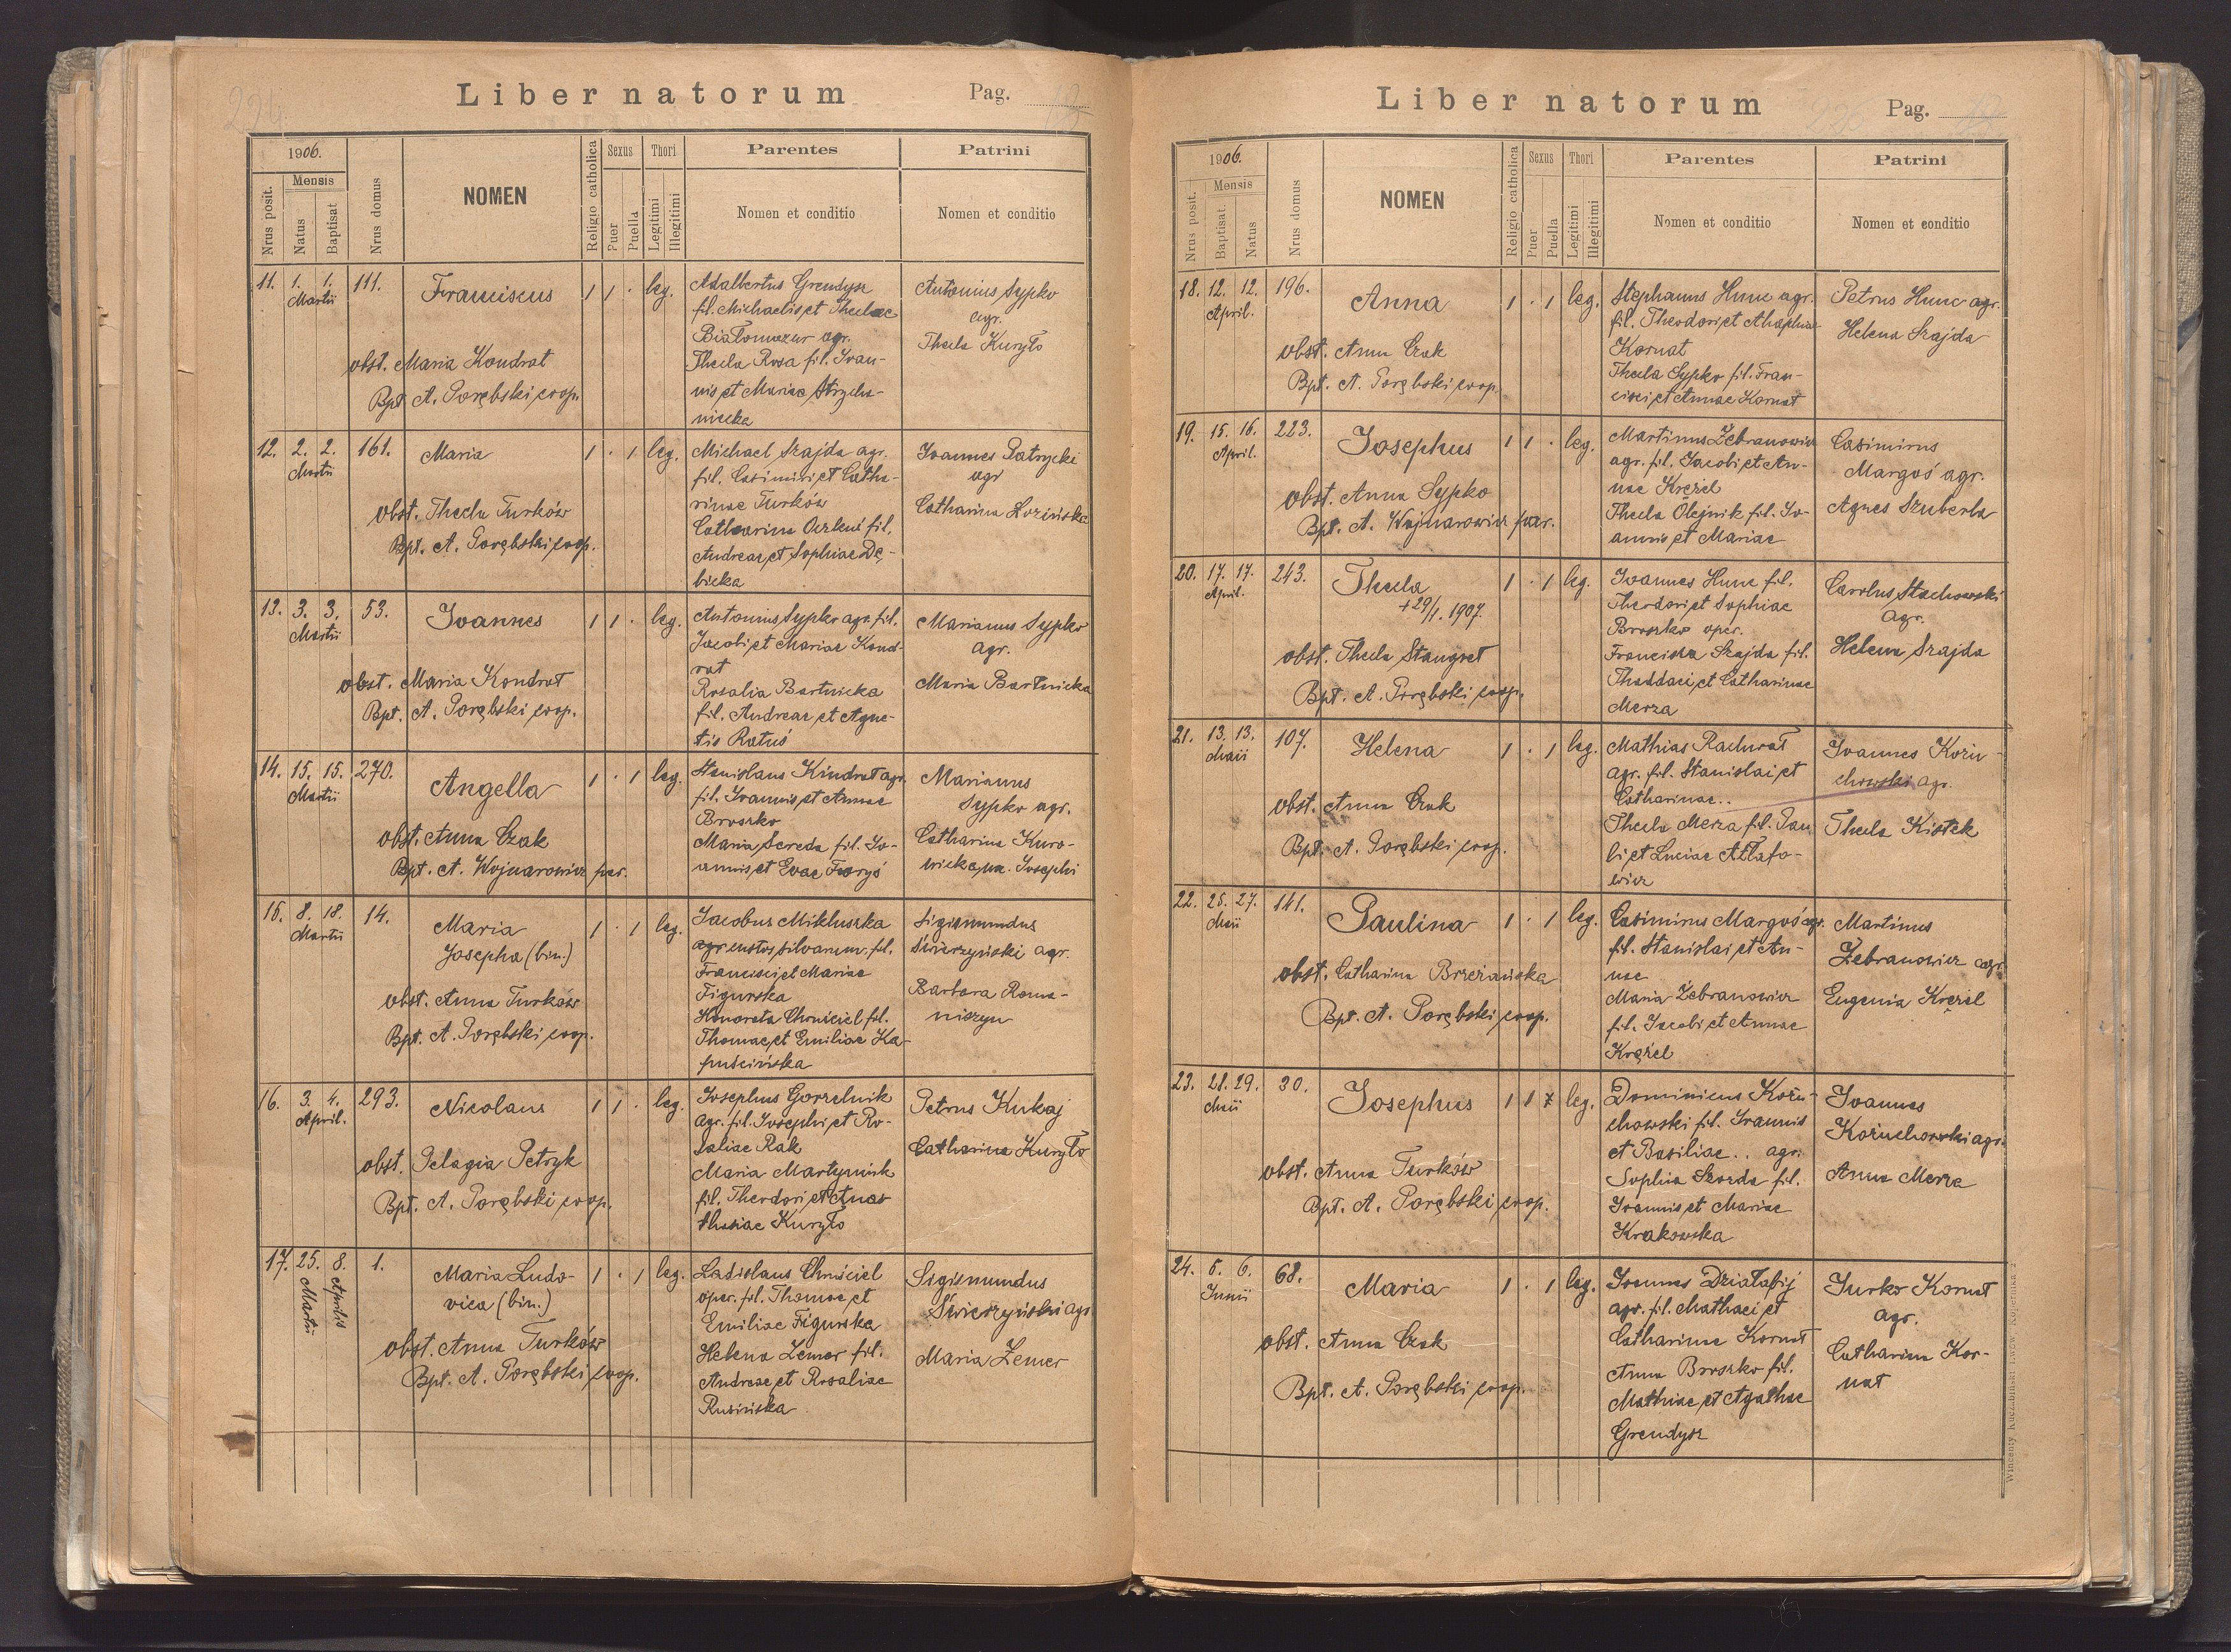 224
Liber natorum Pag.
1906.
Nrus posit.
Mensis
Natus
Baptisat
Nrus domus
NOMEN
Religio catholica
Sexus
Puer
Puella
Thori
Legitimi
Illegitimi
Parentes
Nomen et conditio
Patrini
Nomen et conditio
11. 1. 1. Martii 111. Franciscus 1 1 · leg.
obst. Maria Kondrat
Bpt. A. Porębski coop.
Adalbertus Grendysz
fil. Michaelis et Theclae
Białomazur agr.
Thecla Rosa fil. Ioan-
nis et Mariae Strzele-
niecka
Antonius Sypko
agr.
Thecla Kuryło
12. 2. 2. Martii 161. Maria 1 · 1 leg.
obst. Thecla Turków
Bpt. A. Porębski coop.
Michael Szajda agr.
fil. Casimiri et Catha-
rinae Turków
Catharina fil.
Andreae et Sophiae Dę-
bicka
Ioannes Patrycki
agr
Catharina Łozińska
13. 3. 3. Martii 53. Ioannes 1 1 · leg.
obst. Maria Kondrat
Bpt. A. Porębski coop.
Antonius Sypko agr. fil.
Jacobi et Mariae Kond-
rat
Rosalia Bartnicka
fil. Andreae et Agne-
tis Ratuś
Marianus Sypko
agr.
Maria Bartnicka
14. 15. 15. Martii 270. Angella 1 · 1 leg.
obst. Anna Czak
Bpt. A. Wojnarowicz par.
Stanislaus Kindrat agr.
fil. Ioannis et Annae
Broszko
Maria Sereda fil. Io-
annis et Evae Foryś
Marianus
Sypko agr.
Catharina Kuro-
wicka ux. Iosephi
15. 8. 18. Martii 14. Maria 1 · 1 leg.
Josepha (bin.)
obst. Anna Turków
Bpt. A. Porębski coop.
Jacobus Mikluszka
agr custos silvarum. fil.
Francisci et Mariae
Figurska
Honorata Chruściel fil.
Thomae et Emiliae Ka-
puścińska
Sigismundus
Świerzyński agr.
Barbara Roma-
niszyn
16. 3. 4. April. 293. Nicolaus 1 1 · leg.
obst. Pelagia Petryk
Bpt. A. Porębski coop.
Josephus Gorzelnik
agr. fil. Josephi et Ro-
saliae Rak
Maria Martyniuk
fil. Theodori et Anas
thasiae Kuryło
Petrus Kukaj
Catharina Kuryło
17. 25. Martii 8. Aprilis 1. Maria Ludo- 1 · 1 leg.
vica (bin.)
obst. Anna Turków
Bpt. A. Porębski coop.
Ladislaus Chruściel
oper. fil. Thomae et
Emiliae Figurska
Helena Zemer fil.
Andreae et Rosaliae
Rusińska
Sigismundus
Świerzyński agr
Maria Zemer
Liber natorum Pag.
1906.
Nrus posit.
Mensis
Baptisat.
Natus
Nrus domus
NOMEN
Religio catholica
Sexus
Puer
Puella
Thori
Legitimi
Illegitimi
Parentes
Nomen et conditio
Patrini
Nomen et conditio
18. 12. 12. April. 196. Anna 1 · 1 leg.
obst. Anna Czak
Bpt. A. Porębski coop.
Stephanus Hunc agr.
fil. Theodori et Ahaphiae
Kornat
Thecla Sypko fil. Fran-
cisci et Annae Kornat
Petrus Hunc agr.
Helena Szajda
19. 15. 16. April. 223. Josephus 1 1 · leg.
obst. Anna Sypko
Bpt. A. Wojnarowicz par.
Martinus Żebranowicz
agr. fil. Jacobi et An-
nae Krężel
Thecla Olejnik fil. Io-
annis et Mariae
Casimirus
Margoś agr.
Agnes Szuberla
20. 17. 17. April. 243. Thecla 1 · 1 leg.
+ 29/1. 1907.
obst. Thecla Stangret
Bpt. A. Porębski coop.
Ioannes Hunc fil.
Theodori et Sophiae
Broszko oper.
Francisca Szajda fil.
Thaddaei et Catharinae
Merza
Carolus Stachowski
agr.
Helena Szajda
21. 13. 13. Maii 107. Helena 1 · 1 leg.
obst. Anna Czak
Bpt. A. Porębski coop.
Mathias Radwat
agr. fil. Stanislai et
Catharinae..
Thecla Merza fil. Pau
li et Luciae Atłafo-
wicz
Ioannes Korzu-
chowski agr.
Thecla Kistek
22. 25. 27. Maii 141. Paulina 1 · 1 leg.
obst. Catharina Brzezańska
Bpt. A. Porębski coop.
Casimirus Margoś agr.
fil. Stanislai et An-
nae
Maria Żebranowicz
fil. Jacobi et Annae
Krężel
Martinus
Żebranowicz agr
Eugenia Krężel
23. 21. 29. Maii 30. Josephus 1 1 leg.
obst. Anna Turków
Bpt. A. Porębski coop.
Dominicus Kożu-
chowski fil. Ioannis
et Basiliae.. agr.
Sophia Skorda fil.
Ioannis et Mariae
Krakowska
Ioannes
Kożuchowski agr.
Anna Merza
24. 5. 6. Junii 68. Maria 1 · 1 leg.
obst. Anna Czak
Bpt. A. Porębski coop.
Ioannes Działabij
agr. fil. Mathaei et
Catharinae Kornat
Anna Broszko fil.
Mathiae et Agathae
Grendysz
Jurko Kornat
agr.
Catharina Kor-
nat